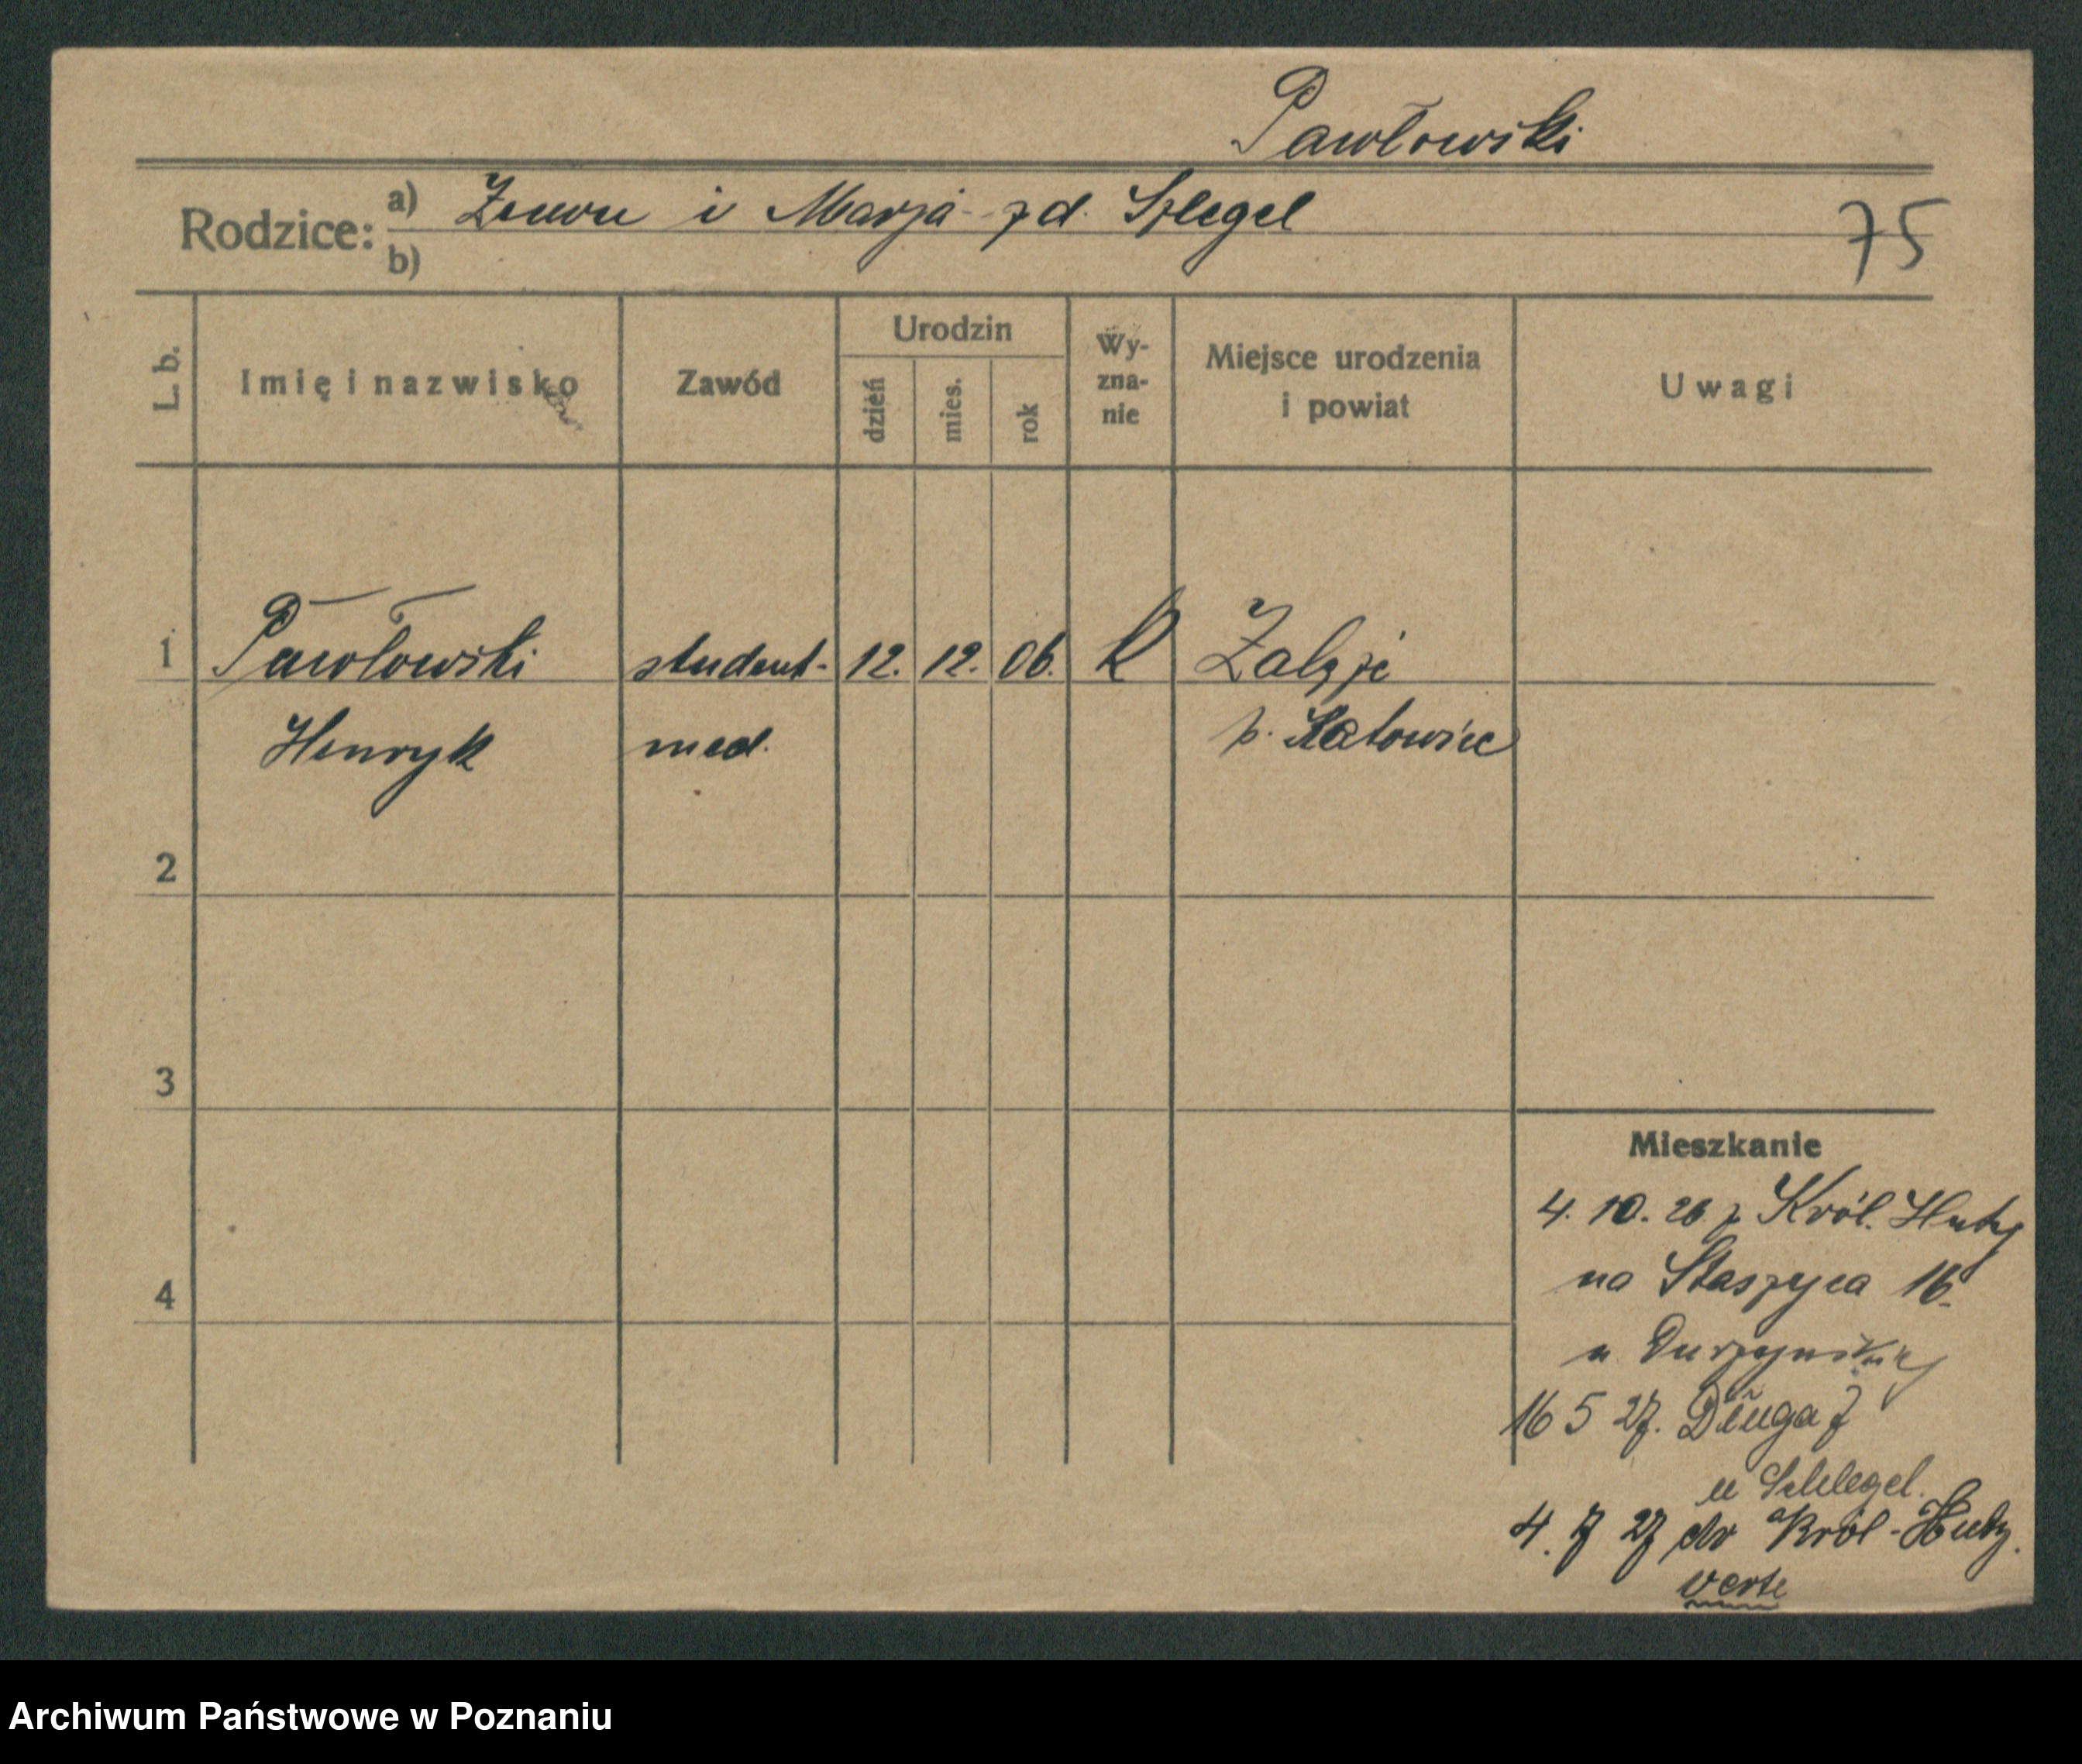 Pawłowski
Rodzice: a) Zenon i Marja z d. Szlegel
75
b)
L. b. Imię i nazwisko Zawód Urodzin dzień mies. rok Wy-zna-nie Miejsce urodzenia i powiat Uwagi
1 Pawłowski student 12. 12. 06. K Załęże
Henryk med. p. Katowice
2
3
4
Mieszkanie
4. 10. 26. z Król. Huty
na Staszyca 16.
u
16 5 27. Długa 7
u Schlegel.
4. 7 27 do Król-Huty.
verte
Archiwum Państwowe w Poznaniu